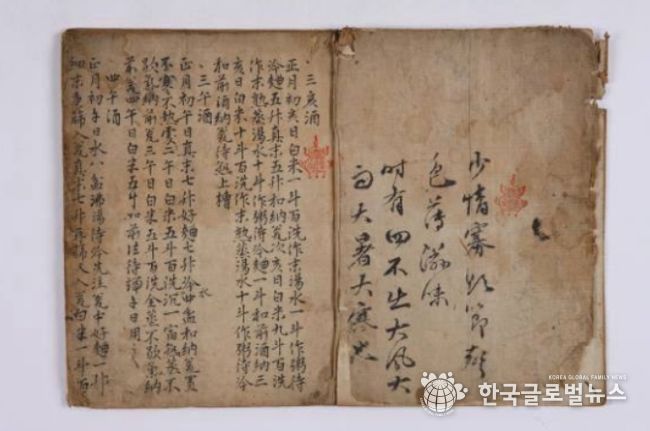 少情寡慾節聲
色薄滋味
時有四不出大風大
雨大暑大寒也
三亥酒
正月初亥日白米一斗百洗作末湯水一斗作粥待
冷麯五升真末五升和納瓮次亥日白米九斗百洗
作末熟蒸湯水十斗作粥待冷麯一斗和前酒納三
亥日白米十斗百洗作末熟蒸湯水十斗作粥待冷
和前酒納瓮待熟上槽
三午酒
正月初午日真末七升好麯七升冷水四盆和納瓮置
不寒不熱處二午日白米五斗百洗沉一宿熟蒸不
歇氣納前瓮三午日白米五斗百洗全蒸不歇氣納
前瓮四午日白米五斗如前法待端午日用之
四午酒
正月初午日水八盆沸湯待冷先注瓮中好麯一升
細末重篩入瓮真末七升再篩又入瓮白米一斗百
KOREA GLOBAL FAMILY NEWS
한국글로벌뉴스